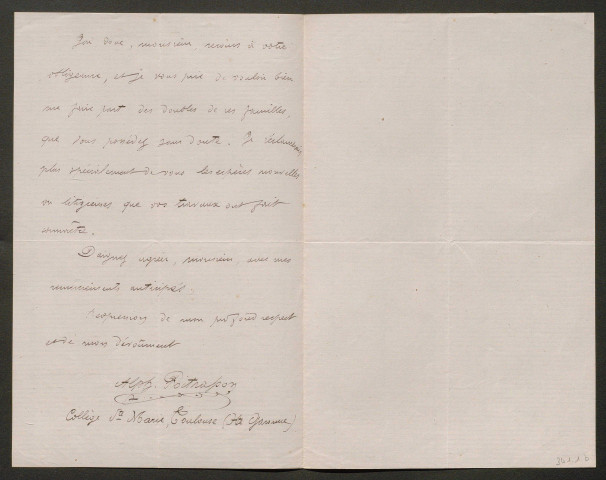 J'ai donc, monsieur, recours à votre
obligeance, et je vous prie de vouloir bien
me faire part des doubles de ces familles,
que vous possédez sans doute. Je réclamerai
plus spécialement de vous les espèces nouvelles
ou litigieuses que vos travaux ont fait
connaître.
Daignez agréer, monsieur, avec mes
remerciements anticipés,
l'expression de mon profond respect
et de mon dévoûment
Alph.
Collège Ste Marie, Toulouse (Hte Garonne)